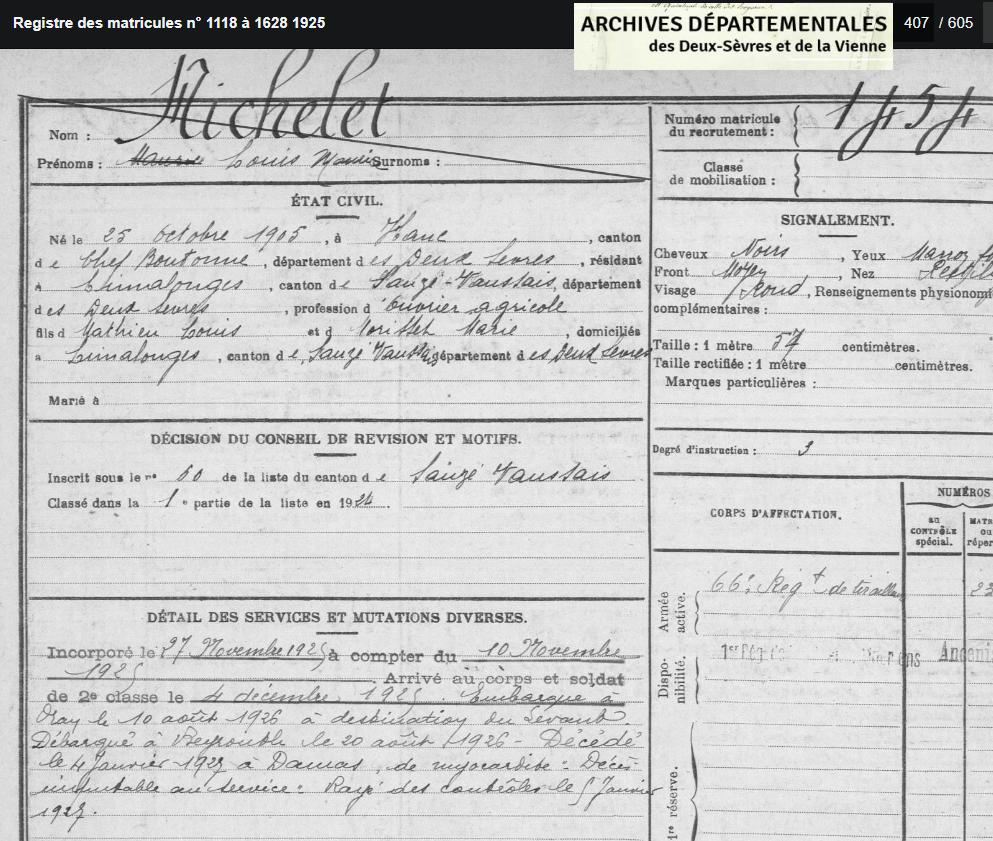 Registre des matricules n° 1118 à 1628 1925
ARCHIVES DÉPARTEMENTALES
des Deux-Sèvres et de la Vienne
407 / 605
Michelet
Nom :
Prénoms : Louis Surnoms :
Numéro matricule
du recrutement : 1454
Classe
de mobilisation :
ÉTAT CIVIL.
Né le 25 octobre 1905, à Hanc, canton
de Chef Boutonne, département des Deux Sèvres, résidant
à Limalonges, canton de Sauzé-Vaussais, département
des Deux Sèvres, profession d'ouvrier agricole
fils d Mathieu Louis et d Morisset Marie, domiciliés
à Limalonges, canton de Sauzé Vaussais, département des Deux Sèvres
Marié à
SIGNALEMENT.
Cheveux Noirs, Yeux
Front Moyen, Nez
Visage Rond, Renseignements physionomi
complémentaires :
Taille : 1 mètre 57 centimètres.
Taille rectifiée : 1 mètre centimètres.
Marques particulières :
Degré d'instruction : 3
DÉCISION DU CONSEIL DE REVISION ET MOTIFS.
Inscrit sous le n° 60 de la liste du canton de Sauzé Vaussais
Classé dans la 1e partie de la liste en 1924
CORPS D'AFFECTATION.
NUMÉROS
au
CONTRÔLE
spécial.
MATR
ou
réper
Armée
active.
66e Régt de tirailleu
22
Dispo-
nibilité.
1er
Anceni
1re réserve.
DÉTAIL DES SERVICES ET MUTATIONS DIVERSES.
Incorporé le 27 Novembre 1925 à compter du 10 Novembre
1925. Arrivé au corps et soldat
de 2e classe le 4 décembre 1925. Embarqué à
le 10 août 1926 à destination du Levant.
Débarqué à Beyrouth le 20 août 1926 - Décédé
le 4 Janvier 1927 à Damas, de myocardite : Décès
imputable au service : Rayé des contrôles le 5 Janvier
1927.